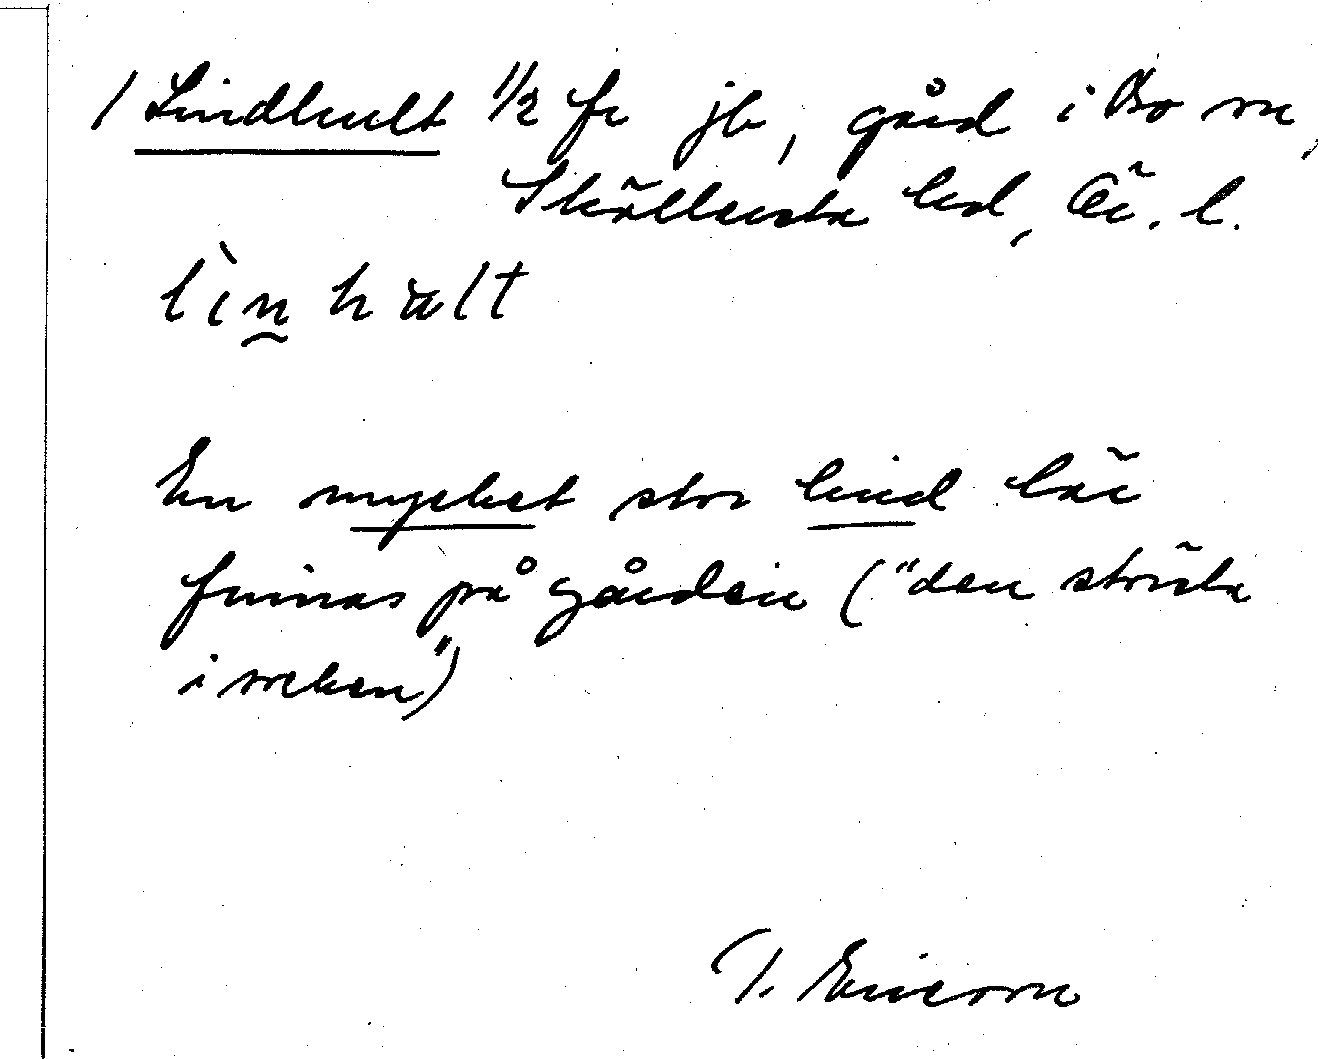 / Lindhult 1/2 fr jb, gård i Bo sn,
Sköllersta hd, Ör. l.
lìn hält
En mycket stor lind lär
finnas på gården ("den största
i socken")
T. Ericson